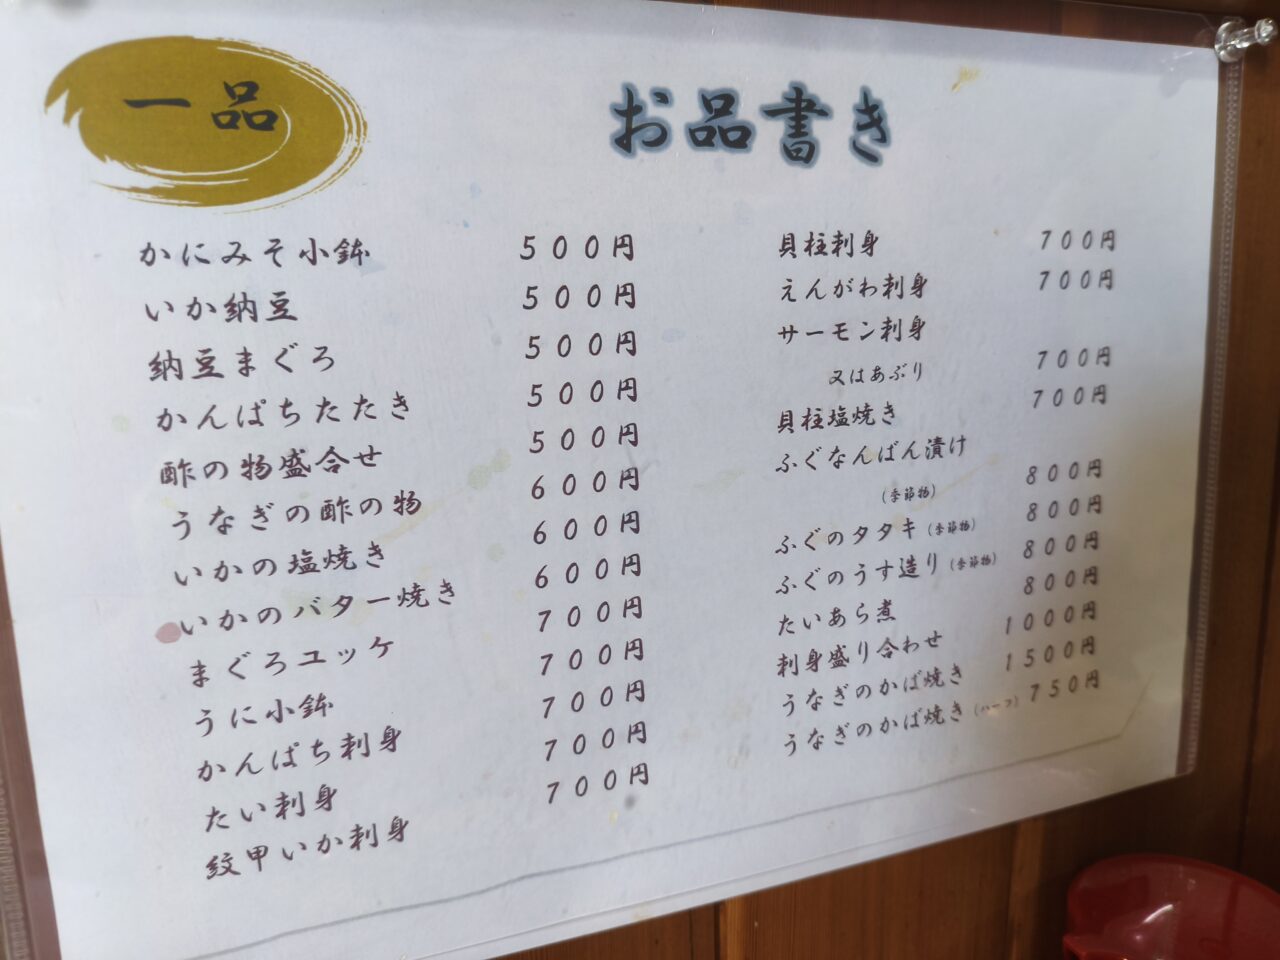 一品
お品書き
かにみそ小鉢 500円
いか納豆 500円
納豆まぐろ 500円
かんぱちたたき 500円
酢の物盛合せ 500円
うなぎの酢の物 600円
いかの塩焼き 600円
いかのバター焼き 600円
まぐろユッケ 700円
うに小鉢 700円
かんぱち刺身 700円
たい刺身 700円
紋甲いか刺身 700円
貝柱刺身 700円
えんがわ刺身 700円
サーモン刺身
又はあぶり 700円
貝柱塩焼き 700円
ふぐなんばん漬け
(季節物) 800円
ふぐのタタキ(季節物) 800円
ふぐのうす造り(季節物) 800円
たいあら煮 800円
刺身盛り合わせ 1000円
うなぎのかば焼き 1500円
うなぎのかば焼き(ハーフ) 750円